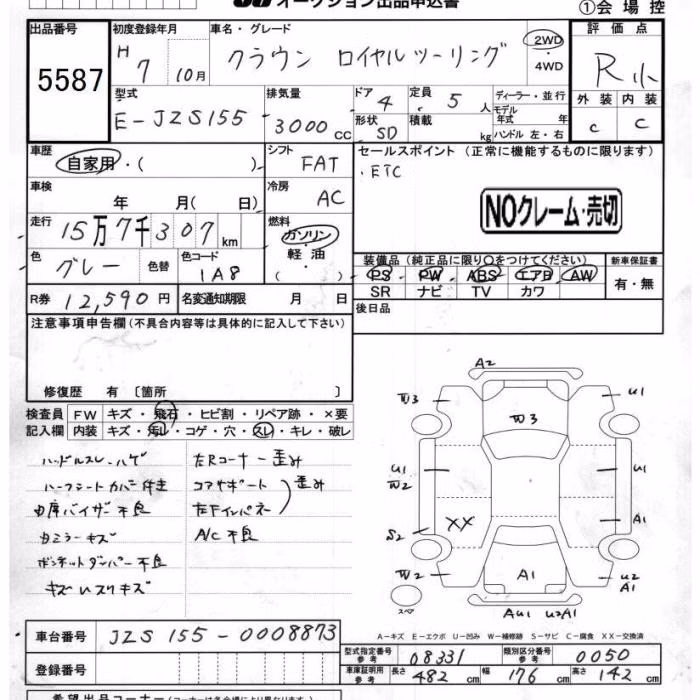 オークション出品申込書
①会場控
出品番号
5587
初度登録年月
H 7 10月
車名・グレード
クラウン ロイヤルツーリング
2WD
4WD
評価点
R小
外装 内装
C C
型式
E-JZS155
排気量
3000cc
ドア 4
定員 5人
形状 SD
積載 kg
ディーラー・並行
モデル年式 年式
ハンドル 左・右
車歴
自家用・( )
シフト
FAT
セールスポイント (正常に機能するものに限ります)
・ETC
NOクレーム・売切
車検
年 月(日)
冷房
AC
走行
15万7千307km
燃料
ガソリン
軽・油
( )
色
グレー
色替
色コード
1A8
装備品(純正品に限り○をつけてください)
PS PW ABS エアB AW
SR ナビ TV カワ
新車保証書
有・無
R券 12,590円
名変通知期限 月 日
後日品
注意事項申告欄(不具合内容等は具体的に記入して下さい)
修復歴 有〔箇所 〕
検査員記入欄
FW キズ・飛石・ヒビ割・リペア跡・×要
内装 キズ・汚れ・コゲ・穴・スレ・キレ・破レ
ハンドルスレ・ハゲ
ハーフシートカバー付き
白席バイザー不良
白ミラーキズ
ボンネットダンパー不良
キズ凹スリキズ
左Rコーナー歪み
コアサポート
左Fインパネ
歪み
A/C不良
A2
W3
U1
W3
U1
W2
XX
A1
S2
W2
A1
U2
A1
スペア
AU1 U2/A1
A-キズ E-エクボ U-凹み W-補修跡 S-サビ C-腐食 XX-交換済
車台番号 JZS155-0008873
登録番号
型式指定番号 参考 08331
類別区分番号 参考 0050
車庫証明用 参考 長さ 482cm 幅 176cm 高さ 142cm
希望出品コーナー